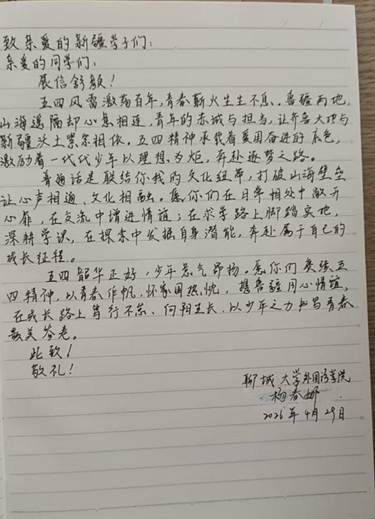 致亲爱的新疆学子们：
亲爱的同学们：
展信舒颜！
五四风雷激荡百年，青春薪火生生不息。鲁疆两地，
山海遥隔却心意相连，青年的赤诚与担当，让齐鲁大地与
新疆沃土紧紧相依。五四精神承载着爱国奋进的底色，
激励着一代代少年以理想为炬，奔赴逐梦之路。
普通话是联结你我的文化纽带，打破山海壁垒
让心声相通、文化相融。愿你们在日常相处中敞开
心扉，在交流中增进情谊；在求学路上脚踏实地，
深耕学识，在探索中发掘自身潜能，奔赴属于自己的
成长征程。
五四韶华正好，少年意气昂扬。愿你们赓续五
四精神，以青春作帆，怀家国热忱，携鲁疆同心情谊，
在成长路上笃行不怠、向阳生长，以少年之力书写青春
最美答卷。
此致！
敬礼！
聊城大学外国语学院
杨春娜
2026年4月29日